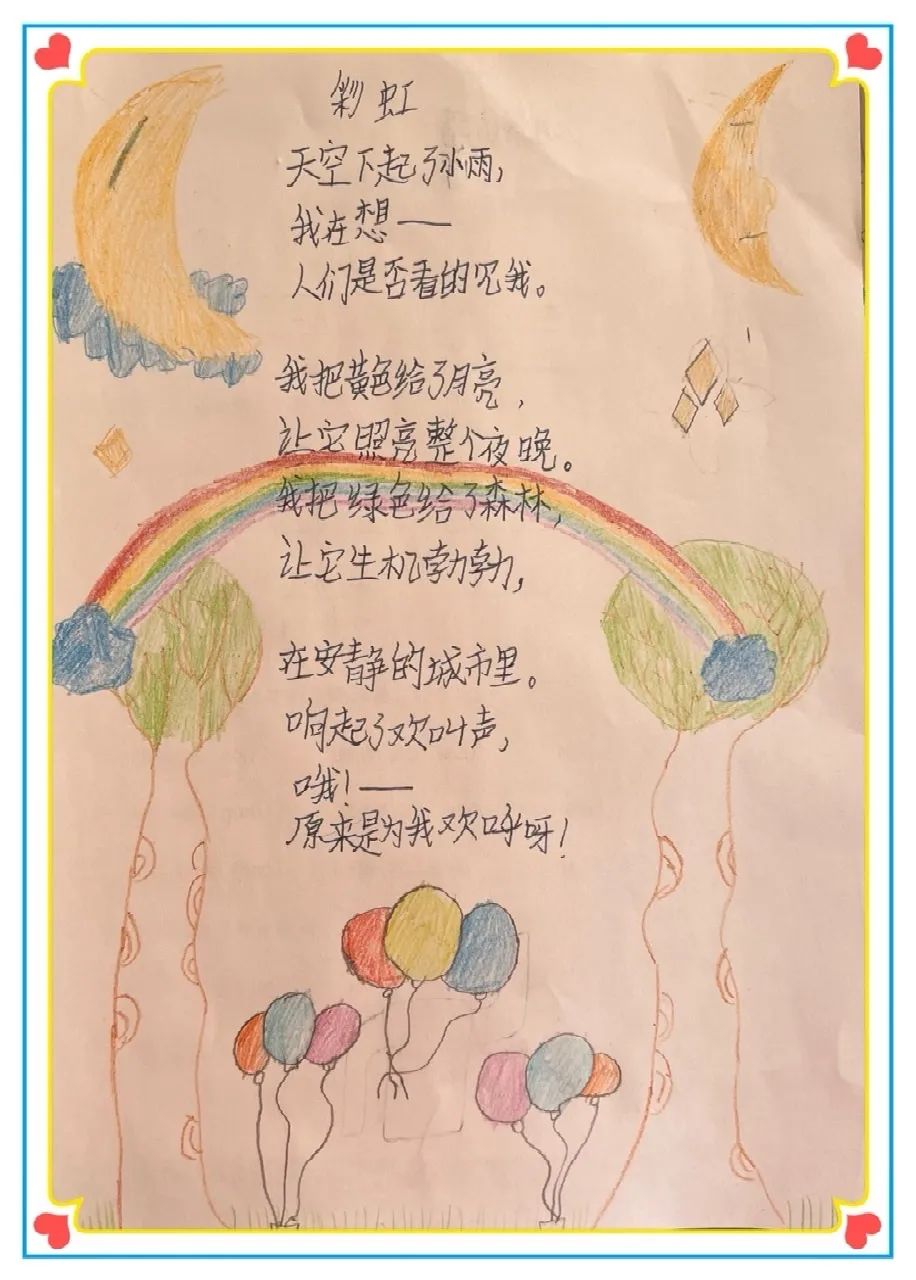 彩虹
天空下起了小雨，
我在想——
人们是否看的见我。
我把黄色给了月亮，
让它照亮整个夜晚。
我把绿色给了森林，
让它生机勃勃，
在安静的城市里。
响起了欢叫声，
哦！——
原来是为我欢呼呀！